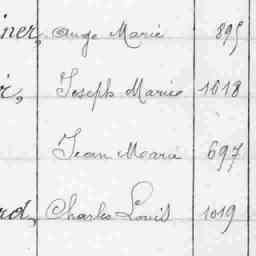 ner, Ange Marie 895
Joseph Marie 1018
Jean Marie 697
rd, Charles Louis 1019